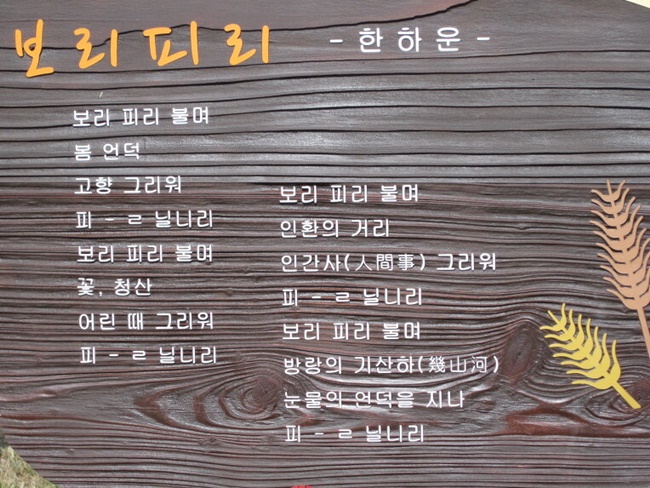 보리피리 - 한하운 -
보리 피리 불며
봄 언덕
고향 그리워
피 - ㄹ 닐니리
보리 피리 불며
꽃, 청산
어린 때 그리워
피 - ㄹ 닐니리
보리 피리 불며
인환의 거리
인간사(人間事) 그리워
피 - ㄹ 닐니리
보리 피리 불며
방랑의 기산하(幾山河)
눈물의 언덕을 지나
피 - ㄹ 닐니리